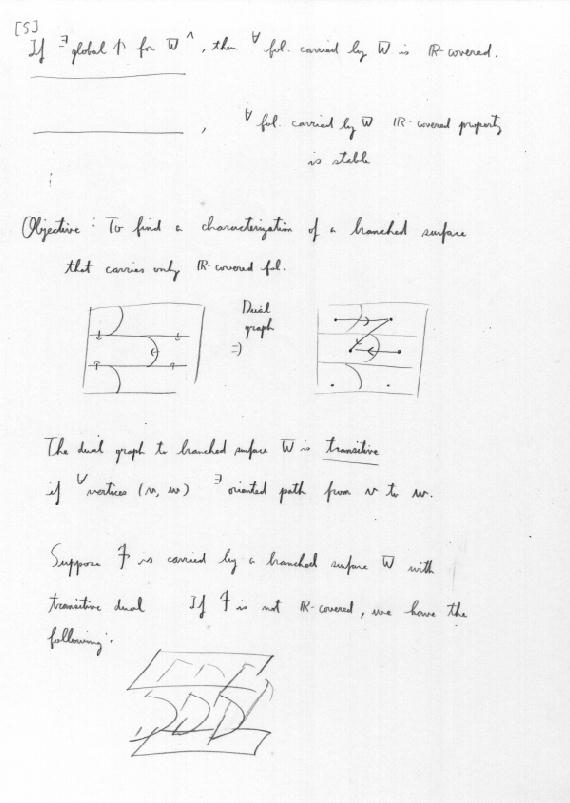 [5]
If ∃ global ↑ for W ^, then ∀ fol. carried by W is R-covered.
, ∀ fol. carried by W R-covered property
is stable
⋮
Objective : To find a characterization of a branched surface
that carries only R-covered fol.
Dual
graph
⇒
The dual graph to branched surface W is transitive
if ∀ vertices (v, w) ∃ oriented path from v to w.
Suppose F is carried by a branched surface W with
transitive dual If F is not R-covered, we have the
following :